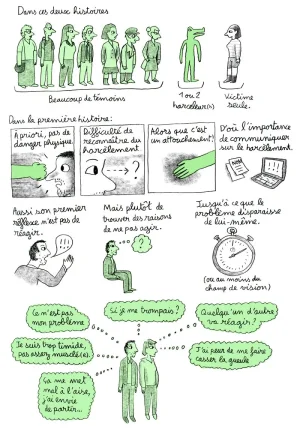 Dans ces deux histoires
Beaucoup de témoins
1 ou 2
harceleur(s)
Victime
seule.
Dans la première histoire:
A priori, pas de
danger physique.
Difficulté de
reconnaître du
harcèlement.
Alors que c'est
un attouchement!
D'où l'importance
de communiquer
sur le harcèlement.
NON
Aussi son premier
réflexe n'est pas de
réagir.
Mais plutôt de
trouver des raisons
de ne pas agir.
?
Jusqu'à ce que le
problème disparaisse
de lui-même.
(ou au moins du
champ de vision)
Ce n'est pas
mon problème
Si je me trompais?
Quelqu'un d'autre
va réagir?
Je suis trop timide,
pas assez musclé(e).
J'ai peur de me faire
casser la gueule
Ça me met
mal à l'aise,
j'ai envie
de partir...